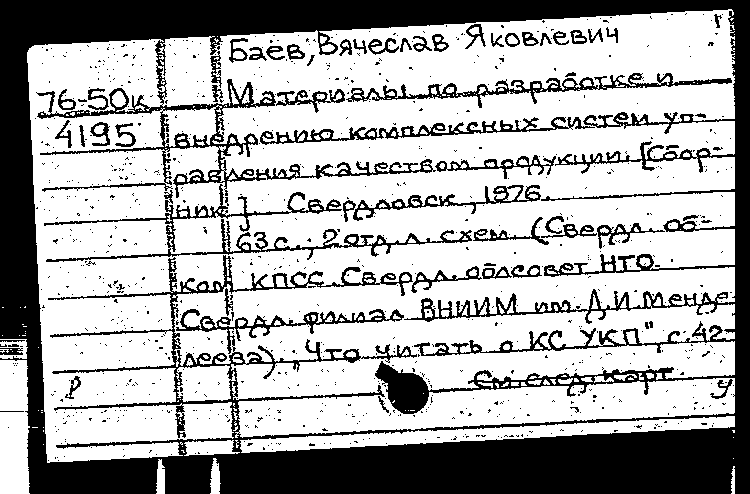 Баев, Вячеслав Яковлевич
76-50к Материалы по разработке и
4195 внедрению комплексных систем уп-
равления качеством продукции. [Сбор-
ник]. Свердловск, 1976.
63 с.; 2 отд. л. схем. (Свердл. об-
ком КПСС. Свердл. облсовет НТО.
Свердл. филиал ВНИИМ им. Д.И. Менде
леева). "Что читать о КС УКП", с. 42-
См. след. карт
у